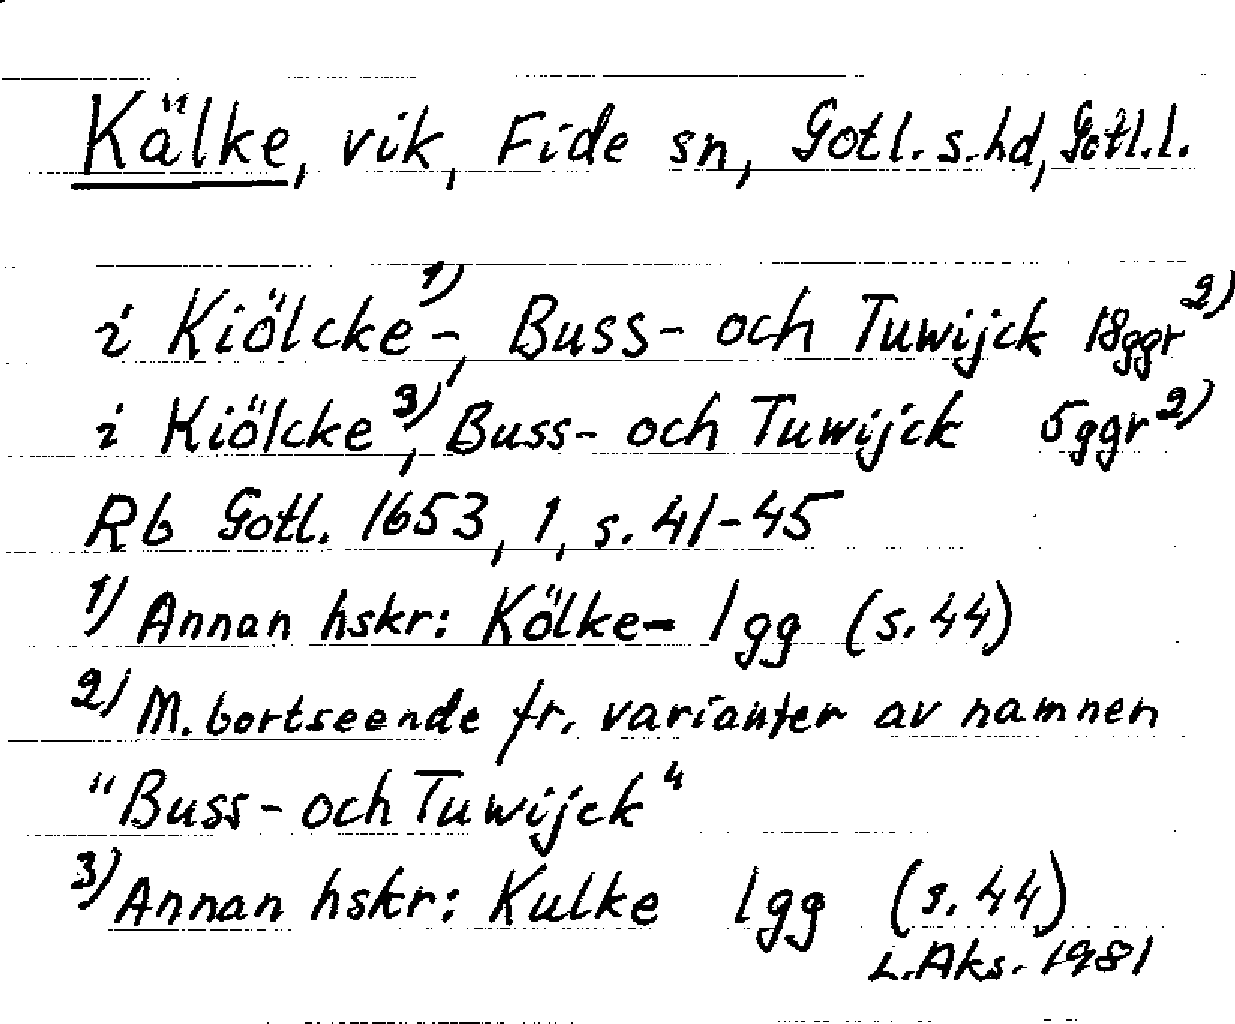 Kälke, vik, Fide sn, Gotl. s. hd, Gotl. l.
i Kiölcke-¹⁾, Buss- och Tuwijck 18ggr²⁾
i Kiölcke³⁾, Buss- och Tuwijck 5ggr²⁾
Rb Gotl. 1653, 1, s. 41-45
1) Annan hskr: Kölke- 1 gg (s. 44)
2) M. bortseende fr. varianter av namnen
"Buss- och Tuwijck"
3) Annan hskr: Kulke 1gg (s. 44)
L. Aks. 1981